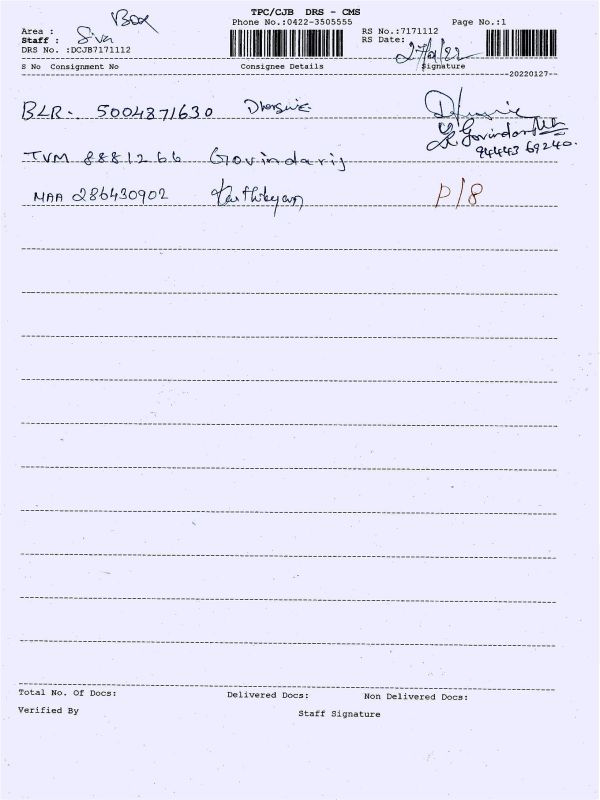 TPC/CJB DRS - CMS
Box
Phone No.:0422-3505555
Page No.:1
Area :
RS No.:7171112
Staff : Siva
RS Date:
DRS No. :DCJB7171112
S No Consignment No
Consignee Details
Signature
--20220127--
BLR- 5004871630
Govindaraj
94443 69240.
TVM 8881266 Govindarij
MAA 286430902 Karthikeyan P/8
Total No. Of Docs:
Delivered Docs:
Non Delivered Docs:
Verified By
Staff Signature